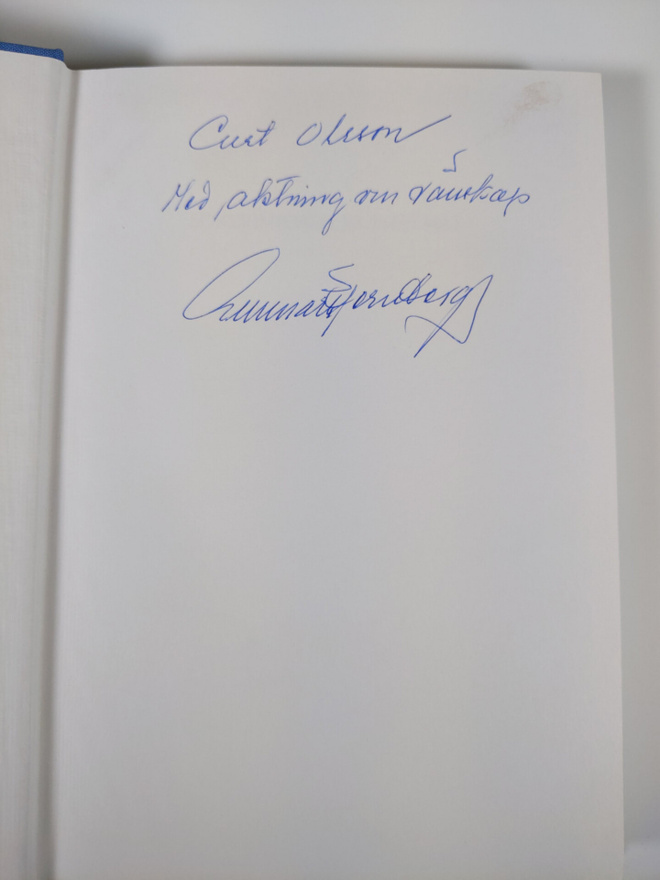 Curt Olsson
Med aktning och vänskap
Gunnar Stjerndborg